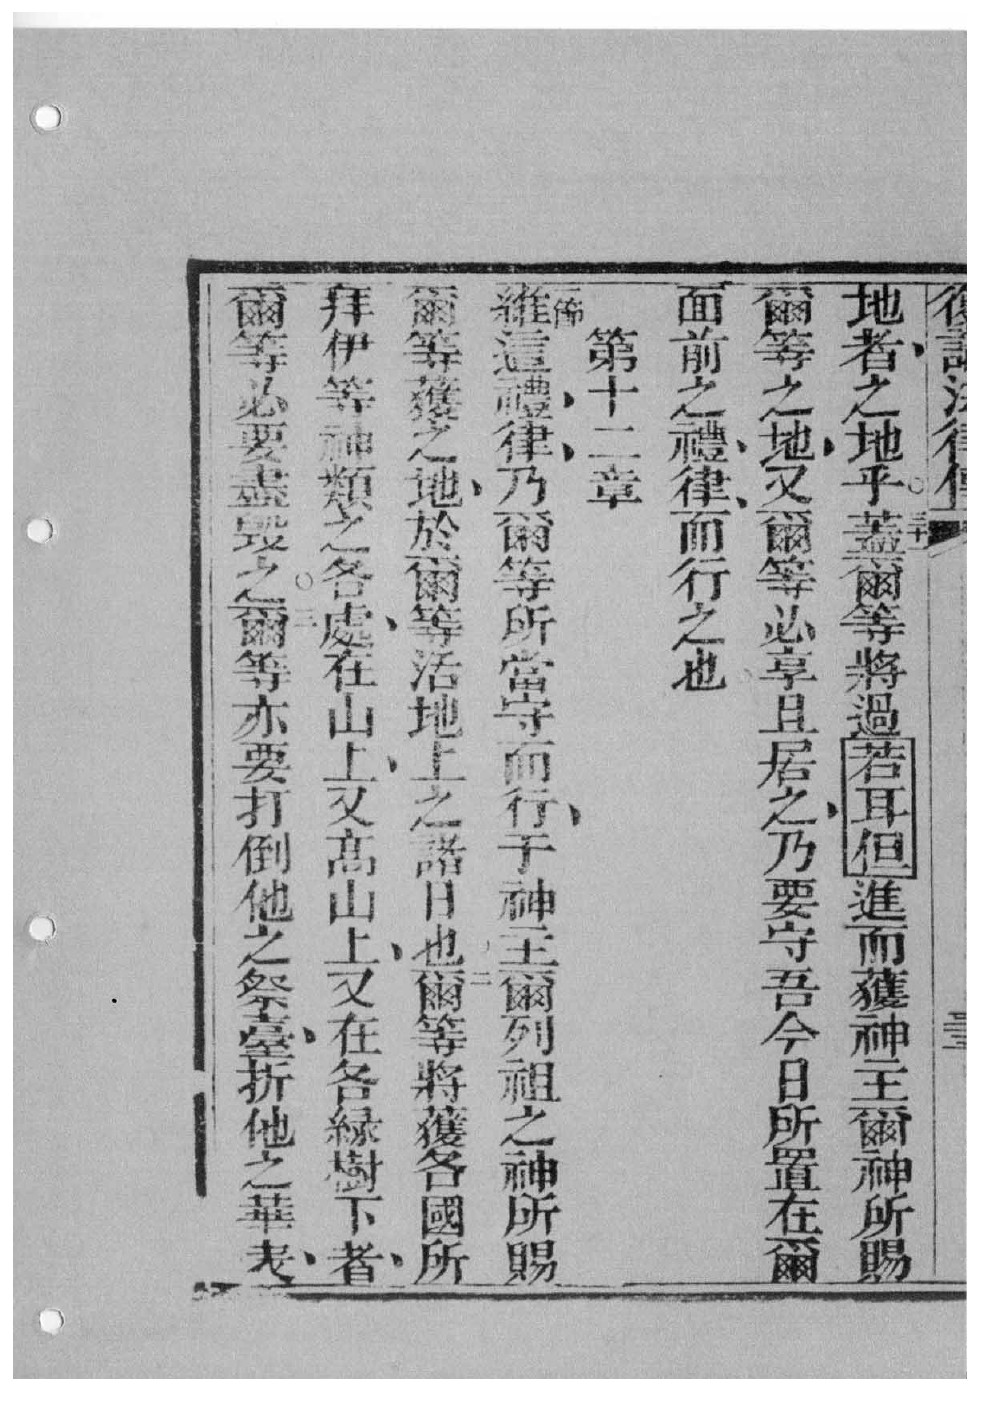 復講法律傳
地者之地乎○三十一蓋爾等將過若耳但進而獲神王爾神所賜
爾等之地又爾等必享且居之乃要守吾今日所置在爾
面前之禮律而行之也
第十二章
維這禮律乃爾等所當守而行于神王爾列祖之神所賜
爾等獲之地於爾等活地上之諸日也二爾等將獲各國所
拜伊等神類之各處在山上又高山上又在各緑樹下者
爾等必要盡毀之○三爾等亦要打倒他之祭臺折他之華